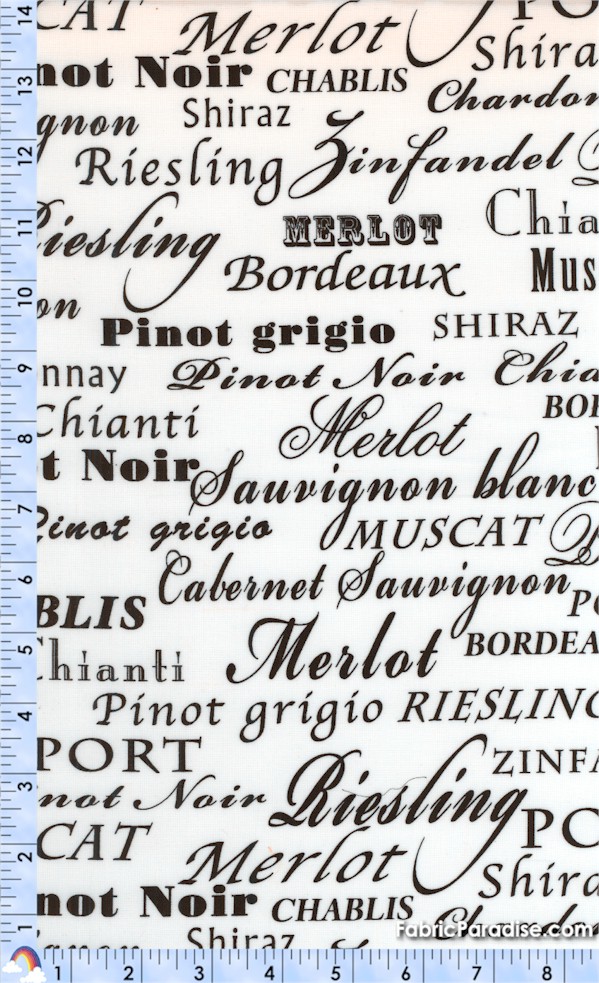 CAT Merlot PO
Shira
not Noir CHABLIS Chardon
gnon Shiraz
Riesling Zinfandel
Riesling MERLOT Chia
Bordeaux Mus
on Pinot grigio SHIRAZ
nnay Pinot Noir Chia
Chianti Merlot BOR
t Noir Sauvignon blanc
Pinot grigio MUSCAT
Cabernet Sauvignon PO
BLIS
Chianti Merlot BORDEA
Pinot grigio RIESLING
PORT ZINFA
not Noir Riesling PO
CAT Merlot Shira
not Noir CHABLIS Chardon
gnon Shiraz
FabricParadise.com
14
13
12
11
10
9
8
7
6
5
4
3
2
1
1 2 3 4 5 6 7 8